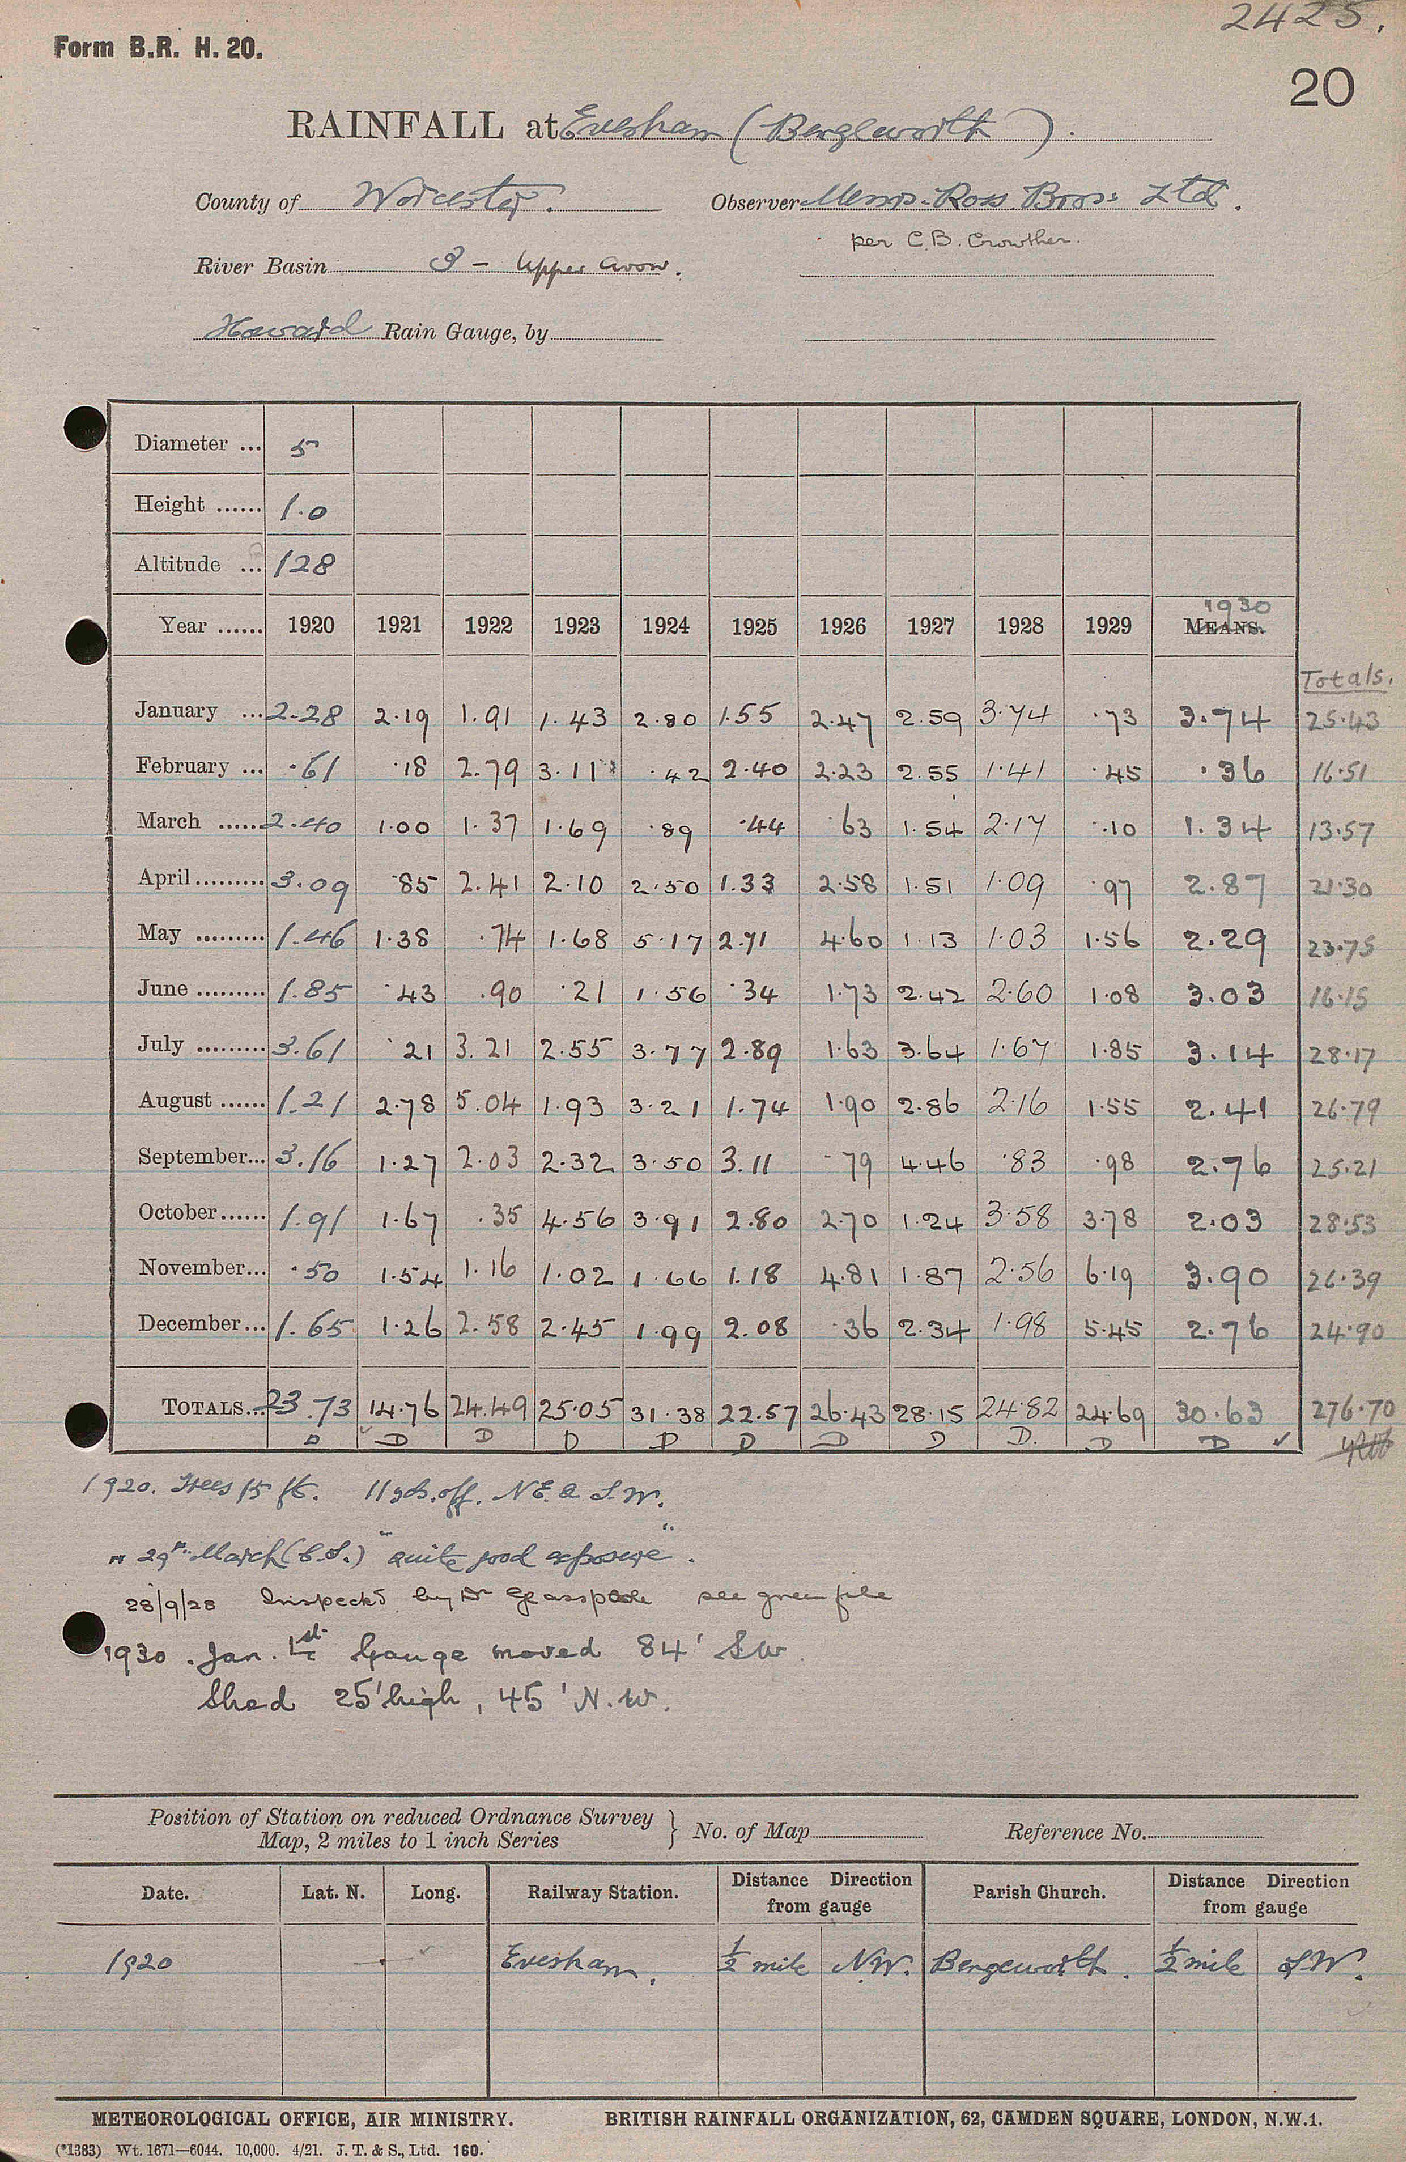 2425.
Form B.R. H. 20.
20
RAINFALL at Evesham (Bengeworth).
County of Worcester. Observer Messrs. Ross Bros: Ltd.
per C.B. Crowther.
River Basin 3 - Upper Avon.
Howard Rain Gauge, by
Diameter ... 5
Height ...... 1.0
Altitude ... 128
1930
Year ...... 1920 1921 1922 1923 1924 1925 1926 1927 1928 1929 MEANS.
Totals.
January ... 2.28 2.19 1.91 1.43 2.80 1.55 2.47 2.59 3.74 .73 3.74 25.43
February ... .61 .18 2.79 3.11 .42 2.40 2.23 2.55 1.41 .45 .36 16.51
March ...... 2.40 1.00 1.37 1.69 .89 .44 .63 1.54 2.17 .10 1.34 13.57
April ......... 3.09 .85 2.41 2.10 2.50 1.33 2.58 1.51 1.09 .97 2.87 21.30
May ......... 1.46 1.38 .74 1.68 5.17 2.71 4.60 1.13 1.03 1.56 2.29 23.75
June ......... 1.85 .43 .90 .21 1.56 .34 1.73 2.42 2.60 1.08 3.03 16.15
July ......... 3.61 .21 3.21 2.55 3.77 2.89 1.63 3.64 1.67 1.85 3.14 28.17
August ...... 1.21 2.78 5.04 1.93 3.21 1.74 1.90 2.86 2.16 1.55 2.41 26.79
September... 3.16 1.27 2.03 2.32 3.50 3.11 .79 4.46 .83 .98 2.76 25.21
October ...... 1.91 1.67 .35 4.56 3.91 2.80 2.70 1.24 3.58 3.78 2.03 28.53
November... .50 1.54 1.16 1.02 1.66 1.18 4.81 1.87 2.56 6.19 3.90 26.39
December ... 1.65 1.26 2.58 2.45 1.99 2.08 .36 2.34 1.98 5.45 2.76 24.90
TOTALS... 23.73 14.76 24.49 25.05 31.38 22.57 26.43 28.15 24.82 24.69 30.63 276.70
D D D D D D D D D. D D ✓
1920. Trees 15 ft. 11 yds. off. N.E. & S.W.
" 29th March (C.S.) "quite good exposure".
28/9/28 Inspected by Dr Glasspoole see green file
1930. Jan. 1st Gauge moved 84' SW.
Shed 25' high, 45' N.W.
Position of Station on reduced Ordnance Survey
Map, 2 miles to 1 inch Series } No. of Map Reference No.
Date. Lat. N. Long. Railway Station. Distance Direction from gauge Parish Church. Distance Direction from gauge
1920 Evesham. ½ mile N.W. Bengeworth. ½ mile S.W.
METEOROLOGICAL OFFICE, AIR MINISTRY. BRITISH RAINFALL ORGANIZATION, 62, CAMDEN SQUARE, LONDON, N.W.1.
(*1383) Wt. 1671—6044. 10,000. 4/21. J. T. & S., Ltd. 160.